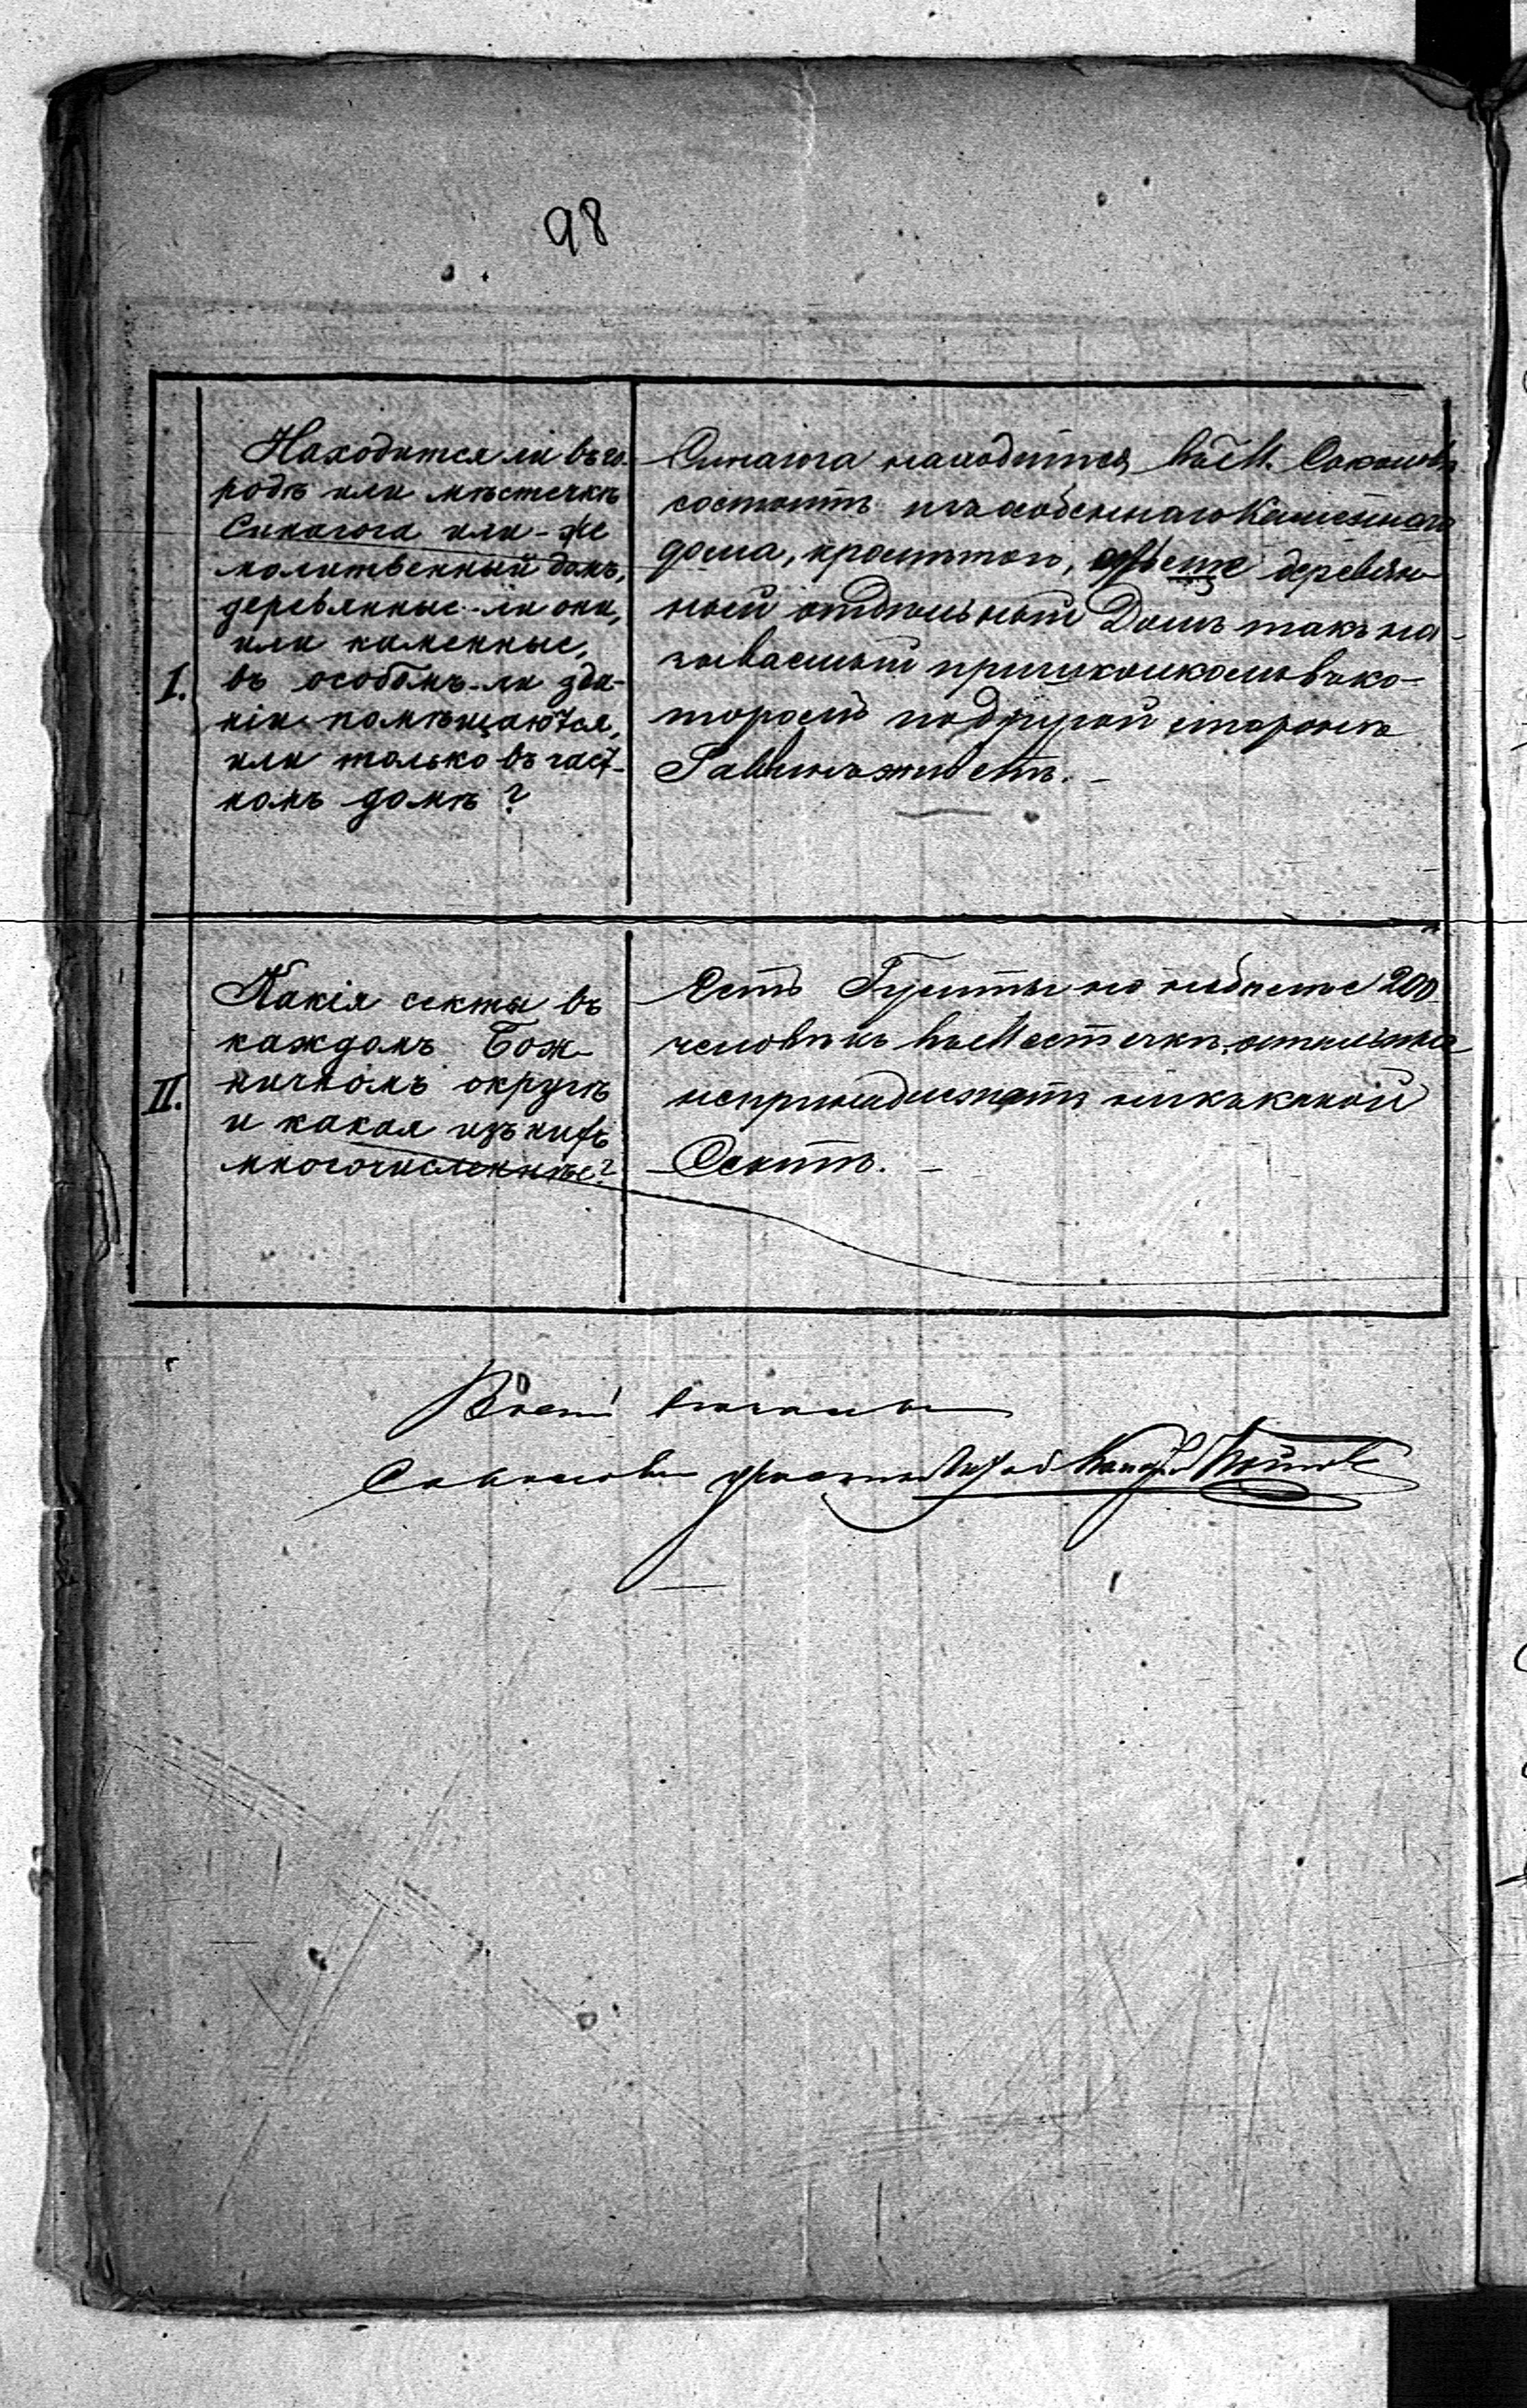 98
I.
Находится ли въ го-
родѣ или мѣстечкѣ
Синагога или-же
молитвенный домъ,
деревянные-ли они,
или каменные,
въ особомъ-ли зда-
ніи помѣщаются,
или только въ част-
номъ домѣ?
Синагога находится въ М. Соколовѣ
состоитъ изъ особеннаго Каменнаго
дома, кромѣ того, еще деревян-
ный отдѣльный Домъ такъ на-
зываемый въ ко-
торомъ по другой сторонѣ
Раввинъ живетъ.
II.
Какія секты въ
каждомъ Бож-
ничномъ округѣ
и какая изъ нихъ
многочисленнѣе?
Есть Гуситы 200
человѣкъ въ Местечкѣ, остальные
непринадлежатъ никакой
Сектѣ.